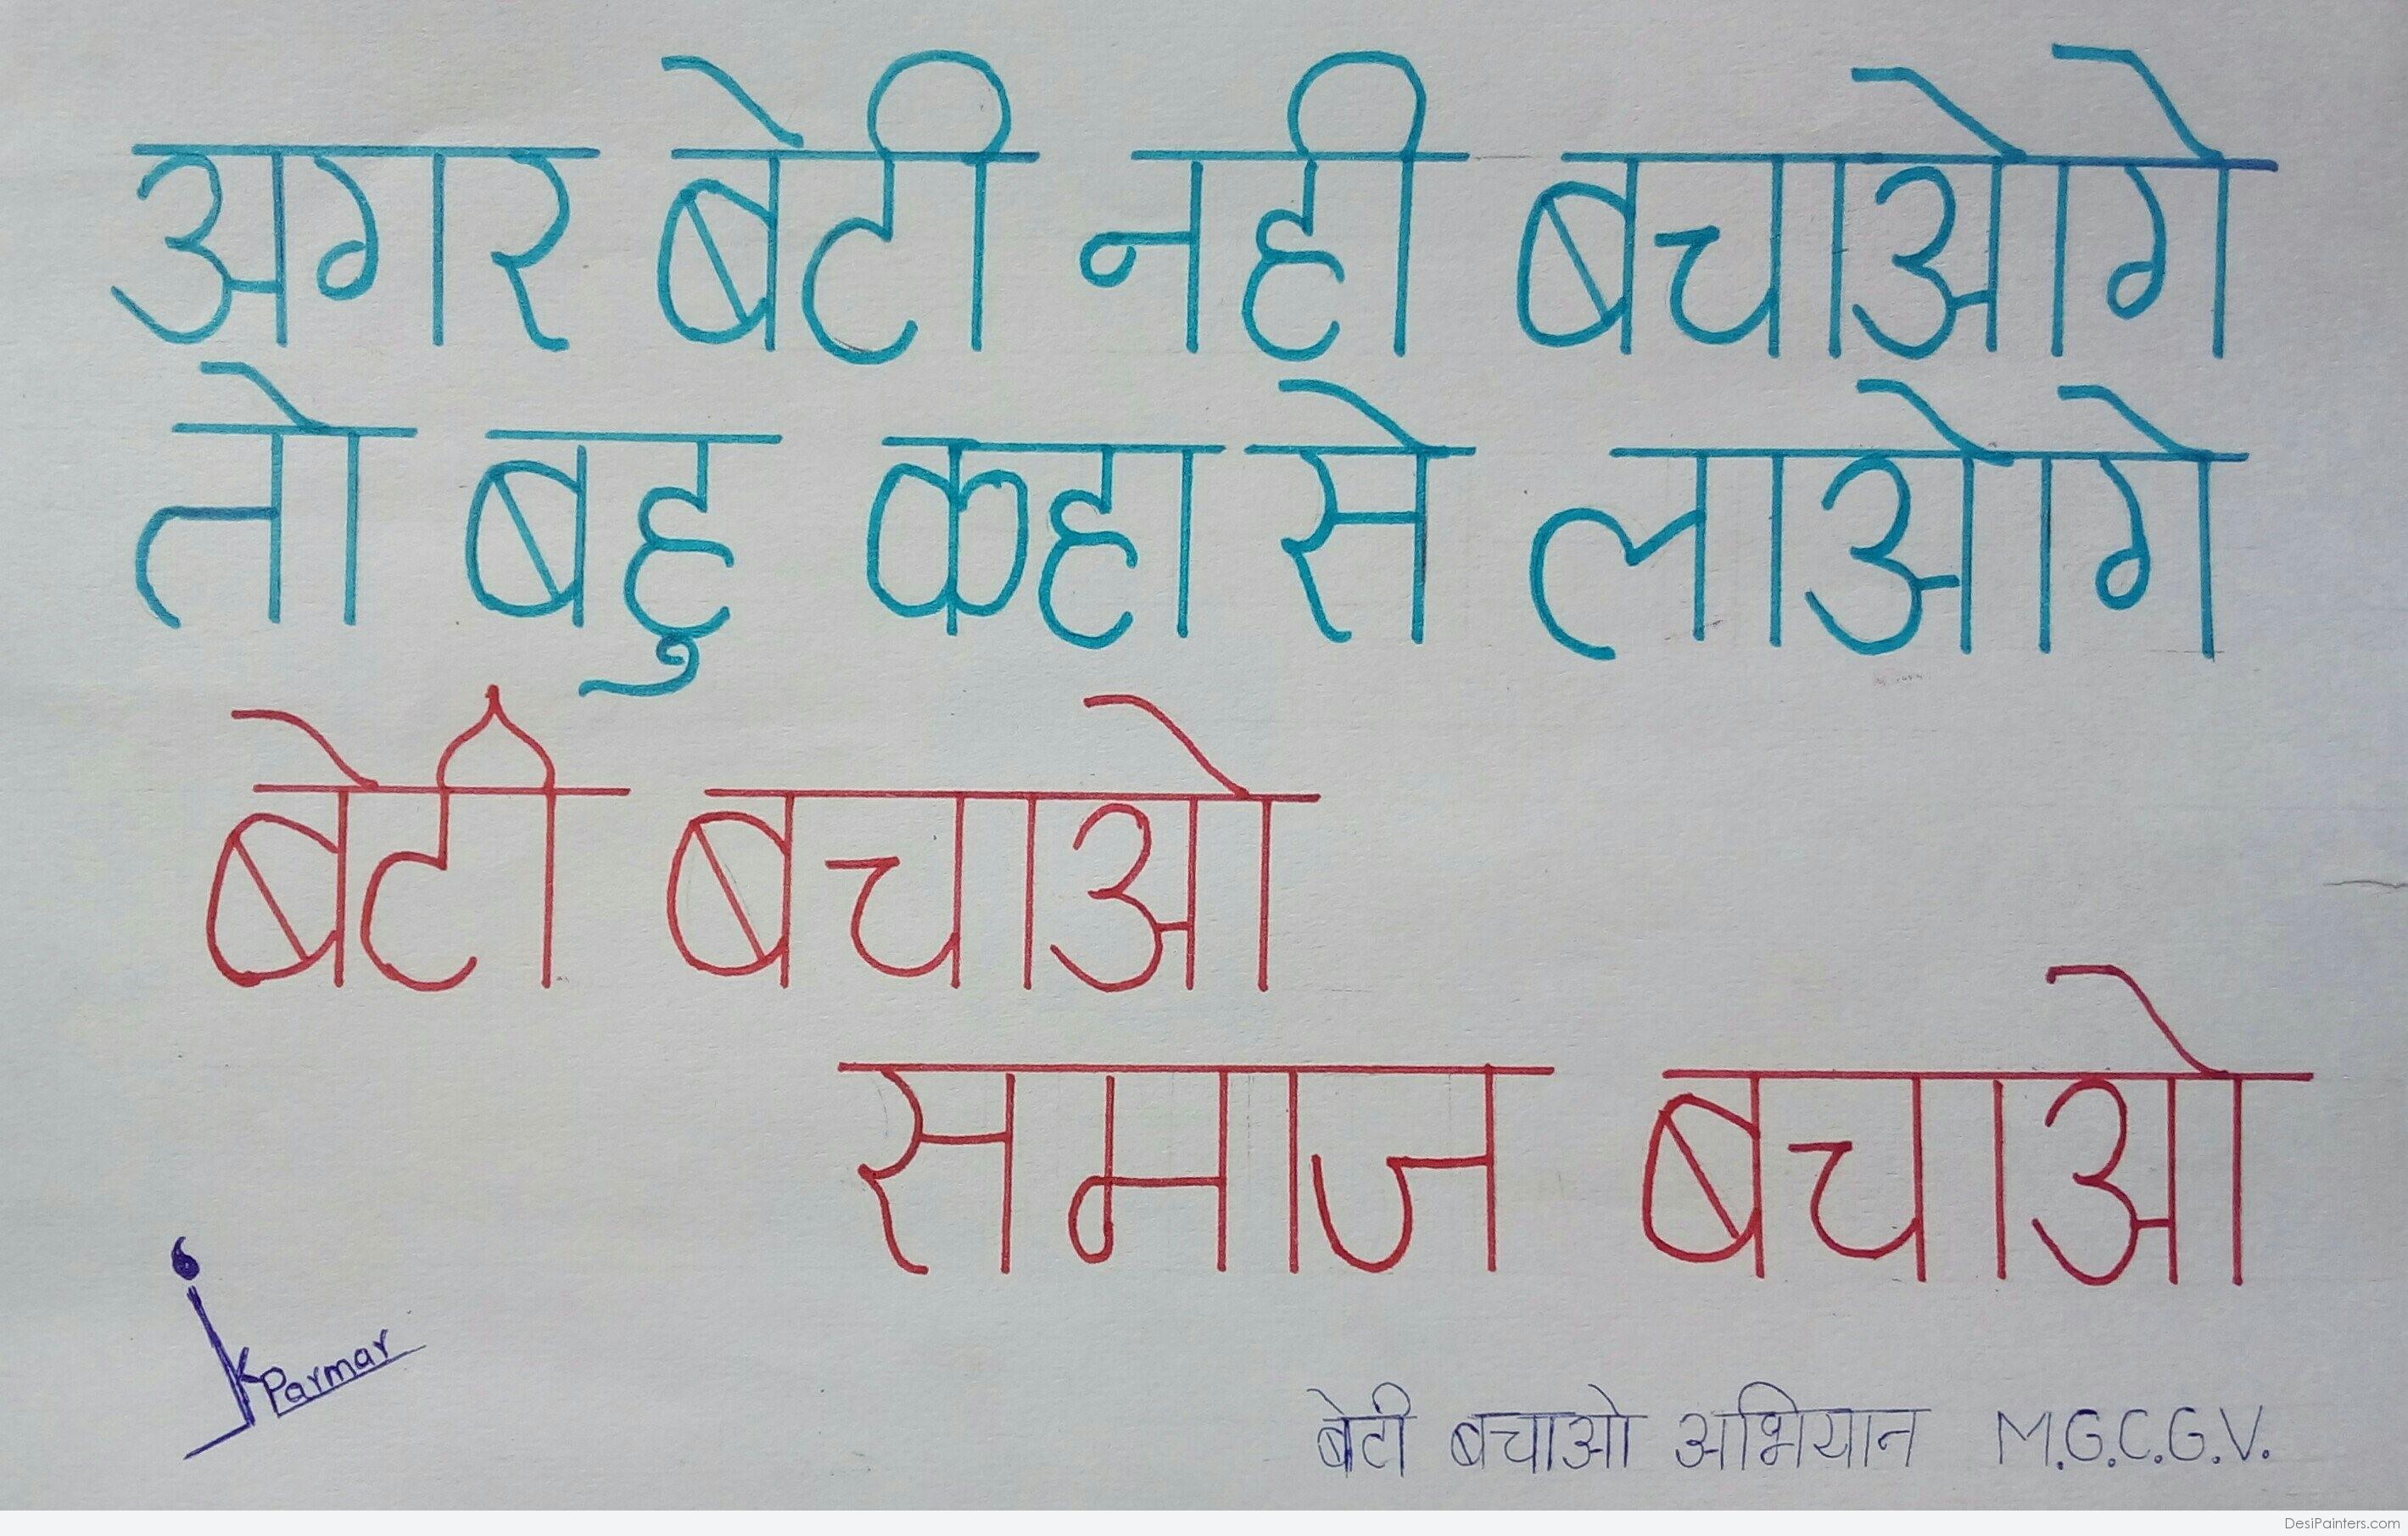 अगर बेटी नही बचाओगे
तो बहु कहा से लाओगे
बेटी बचाओ
समाज बचाओ
JK Parmar
बेटी बचाओ अभियान M.G.C.G.V.
DesiPainters.com